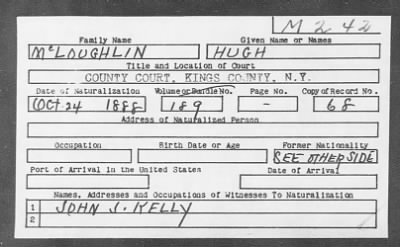 M 242
Family Name Given Name or Names
McLOUGHLIN HUGH
Title and Location of Court
COUNTY COURT, KINGS COUNTY, N.Y.
Date of Naturalization Volume or Bundle No. Page No. Copy of Record No.
Oct. 24 1888 189 - 68
Address of Naturalized Person
Occupation Birth Date or Age Former Nationality
SEE OTHER SIDE
Port of Arrival in the United States Date of Arrival
Names, Addresses and Occupations of Witnesses To Naturalization
1 JOHN J. KELLY
2